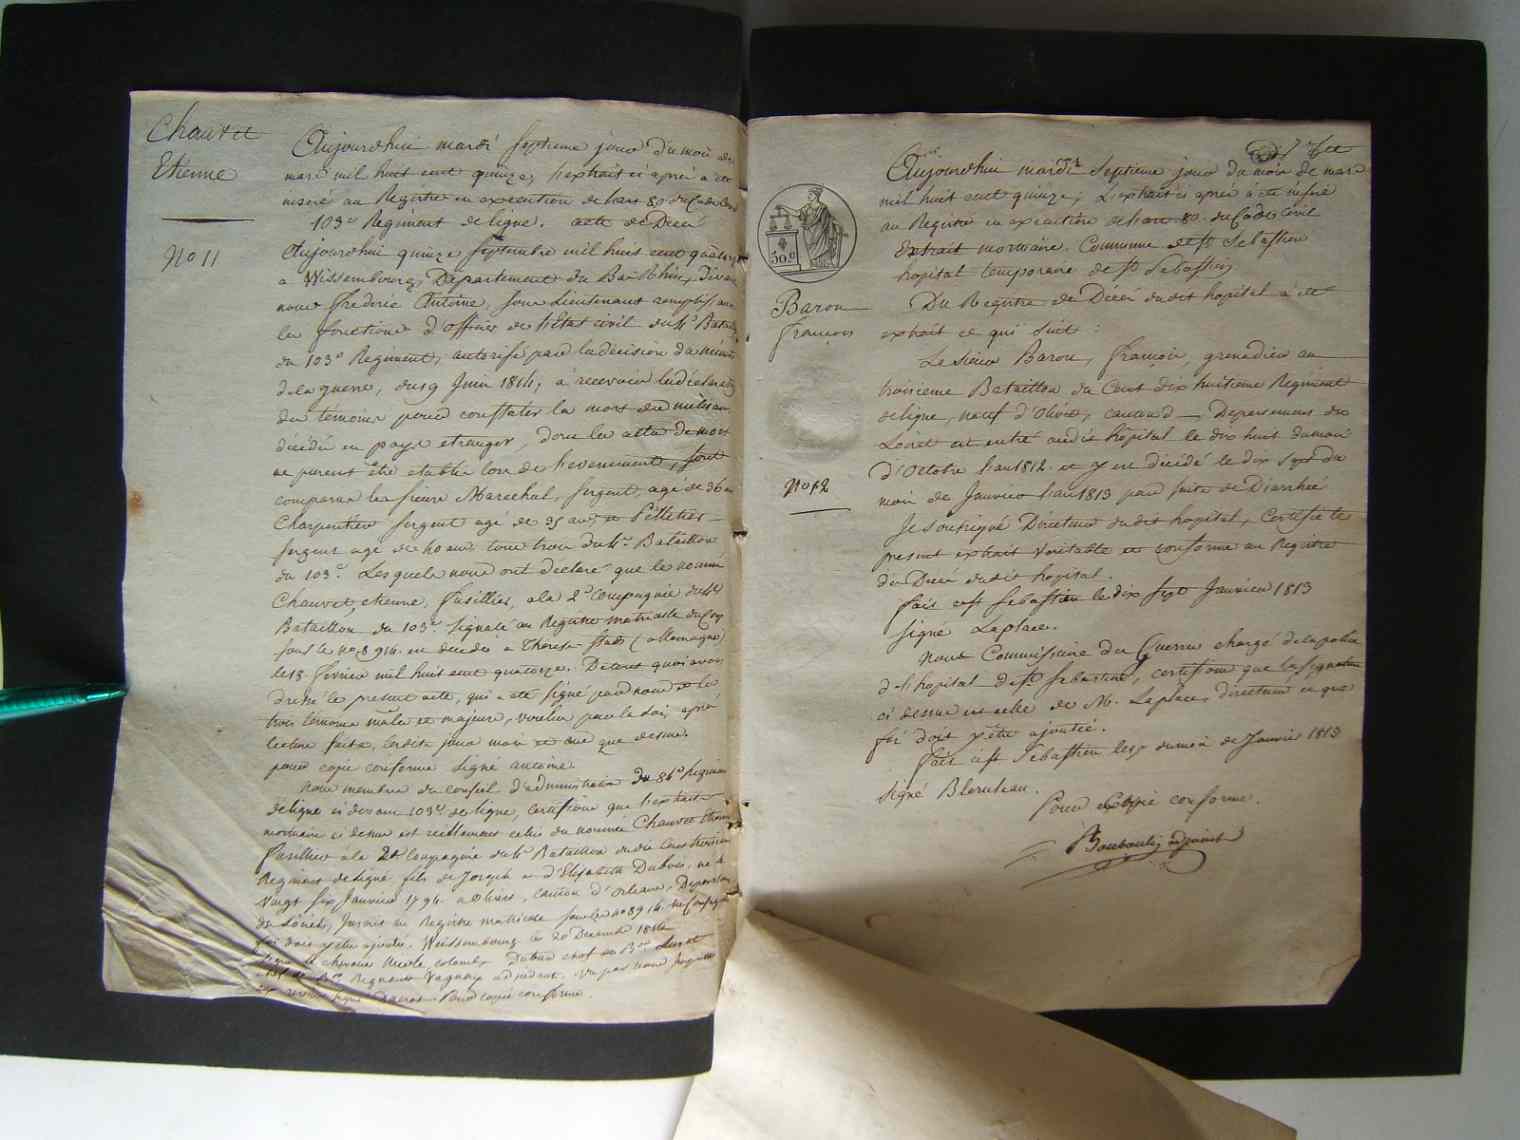 Chauvet
Etienne
No 11
Aujourdhui mardi septieme jour du mois de
mars mil huit cent quinze, l'extrait ci après a été
inseré au Régistre en execution de l'art 80 du Code Civil
103e Regiment de ligne. acte de Décé
Aujourdhui quinze septembre mil huit cent quatorze
a Wissembourg, Département du Bas Rhin, devant
nous fréderic Antoine, sous Lieutenant remplissant
les fonctions d'officier de l'Etat civil du 4e Bataillon
du 103e Regiment, autorisé par la décision du ministre
de la guerre, du 9 Juin 1814, a recevoir les déclarations
des temoins pour constater la mort des militaires
décédés en pays etranger, dont les actes de mort
ne purent être etablis lors de l'evenement, sont
comparus les sieurs Marechal, sergent, agé de 36 ans
Charpentier sergent agé de 35 ans et Pelletier
sergent agé de 40 ans tous trois du 4e Bataillon
du 103e. Lesquels nous ont déclaré que le nommé
Chauvet, etienne, fusillier, a la 2e Compagnie du 4e
Bataillon du 103e signalé au Registre matricule du Corps
sous le no 8914. est décédé a Theresestadt (allemagne)
le 15 fevrier mil huit cent quatorze. De tout quoi avons
dressé le present acte, qui a été signé par nous et les
trois témoins mâles et majeurs, voulus par la loi, après
lecture faite, lesdits jour mois et an que dessus.
pour copie conforme signé antoine
Nous membres du conseil d'administration du 84e Regiment
de ligne ci devant 103e de ligne, certifions que l'extrait
mortuaire ci dessus est réellement celui du nommé Chauvet Etienne
fusillier à la 2e Compagnie du 4e Bataillon dudit Cent troisieme
Regiment de ligne fils de Joseph et d'Elizabeth Dubois, né le
Vingt six Janvier 1794 a Olivet, canton d'Orleans, Departement
du Loiret, Inscrit au Registre matricule sous le no 8914. en Consequence
foi doit y être ajoutée. Weissembourg le 20 Decembre 1814
signé le chevalier colonel Dubud chef de Bon
chef de Bon Regnault Vagnair adjudant. Vu par nous
signé Pour copie conforme.
Aujourdhui mardi Septieme jour du mois de mars
mil huit cent quinze; L'extrait ci après a été inseré
au Registre en execution de l'art 80. du Code Civil
Extrait mortuaire. Commune de St Sebastien
hopital temporaire de St Sebastien
30 c
Baron
françois
No 12
Du Registre de Décès dudit hopital a été
extrait ce qui suit:
Le sieur Baron, françois, grenadier au
troisieme Bataillon du Cent dix huitieme Regiment
de ligne, natif d'Olivet, canton d Departement du
Loiret est entré audit hôpital le dix huit du mois
d'Octobre l'an 1812. et y est décédé le dix sept du
mois de Janvier l'an 1813 par suite de Diarrhée
Je soussigné Directeur dudit hopital, Certifie le
present extrait veritable et conforme au Registre
de Décès dudit hopital.
fait a St Sebastien le dix sept Janvier 1813
signé Laplace.
Nous Commissaire des Guerres chargé de la police
de l'hopital de St Sebastien, certifions que la signature
ci dessus est celle de M. Laplace, directeur et que
foi doit y être ajoutée.
fait a St Sebastien les jour du mois de Janvier 1813
signé
Pour copie conforme.
adjoint